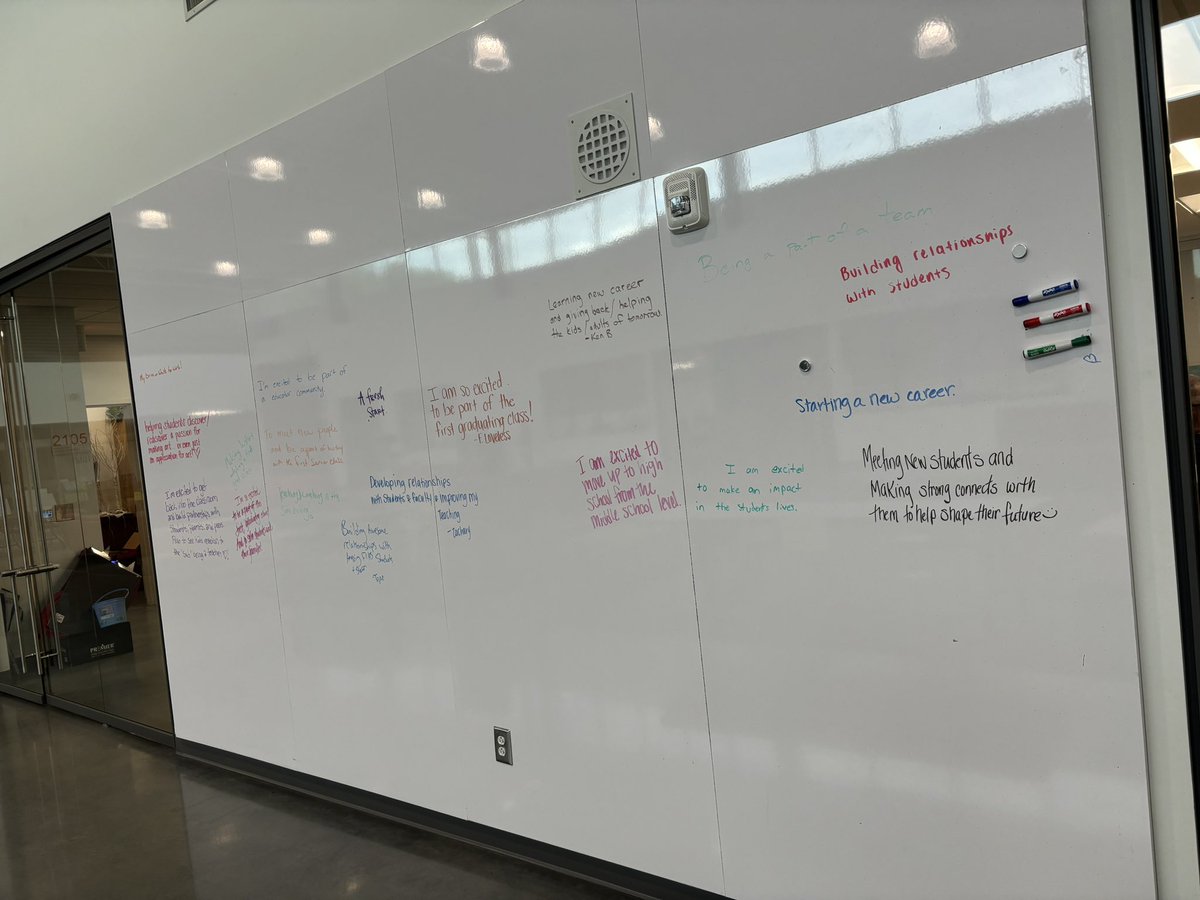 Being a part of a team
Building relationships
with students
Learning new career
and giving back/helping
the kids/adults of tomorrow.
- Ken B
I'm excited to be part of
a educator community
A fresh
start
I am so excited
to be part of the
first graduating class!
- F. Loveless
Starting a new career.
helping students discover/
rediscover a passion for
making art or even just
an appreciation for art!
To meet new people
and be a part of history
with the first Senior class
2105
Developing relationships
with students & faculty & improving my
teaching
- Zachary
I am excited to
move up to high
school from the
middle school level.
I am excited
to make an impact
in the students lives.
Meeting New students and
Making strong connects with
them to help shape their future
I'm excited to be
back into the classroom
and build partnerships with
students, families and peers.
Building
relationships with
students
+ staff
Tom
EXPO
EXPO
EXPO
PREMIER